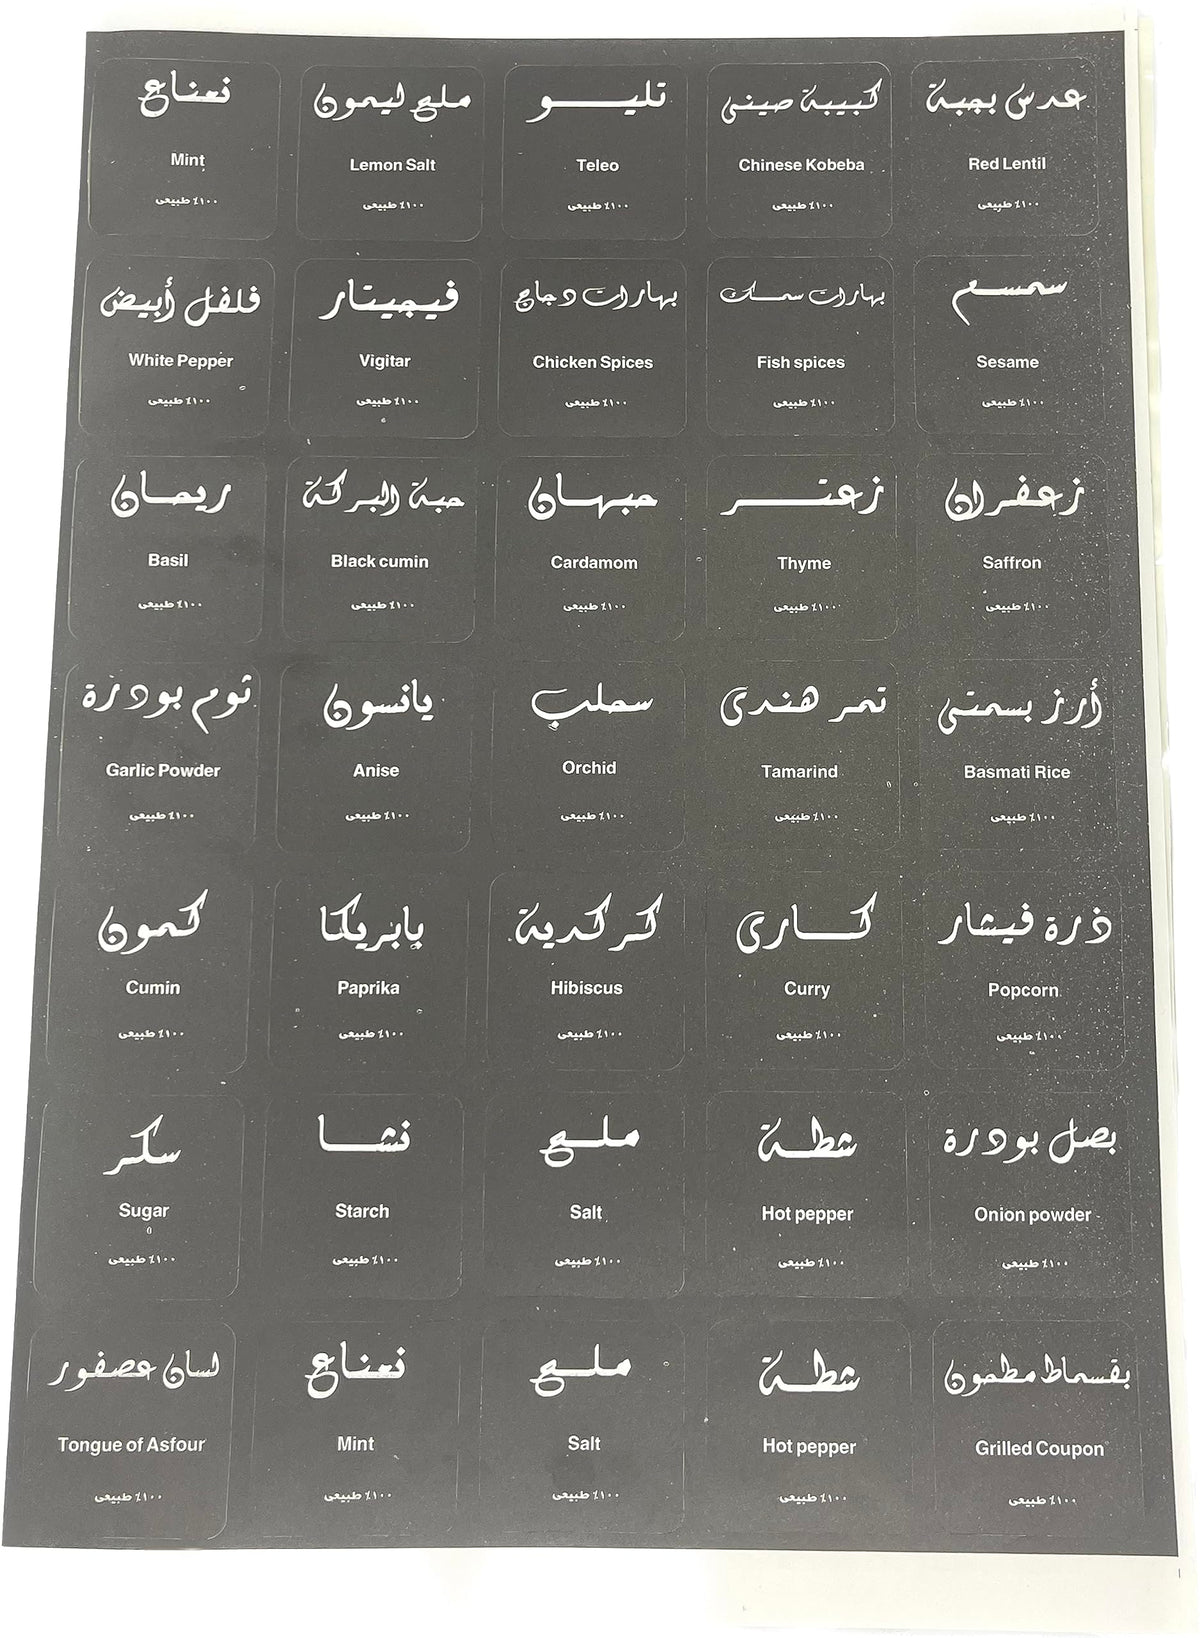 نعناع
Mint
١٠٠٪ طبيعى
ملح ليمون
Lemon Salt
١٠٠٪ طبيعى
تليو
Teleo
١٠٠٪ طبيعى
كبيبة صينى
Chinese Kobeba
١٠٠٪ طبيعى
عدس بجبة
Red Lentil
١٠٠٪ طبيعى
فلفل أبيض
White Pepper
١٠٠٪ طبيعى
فيجيتار
Vigitar
١٠٠٪ طبيعى
بهارات دجاج
Chicken Spices
١٠٠٪ طبيعى
بهارات سمك
Fish spices
١٠٠٪ طبيعى
سمسم
Sesame
١٠٠٪ طبيعى
ريحان
Basil
١٠٠٪ طبيعى
حبة البركة
Black cumin
١٠٠٪ طبيعى
حبهان
Cardamom
١٠٠٪ طبيعى
زعتر
Thyme
١٠٠٪ طبيعى
زعفران
Saffron
١٠٠٪ طبيعى
ثوم بودرة
Garlic Powder
١٠٠٪ طبيعى
يانسون
Anise
١٠٠٪ طبيعى
سحلب
Orchid
١٠٠٪ طبيعى
تمر هندى
Tamarind
١٠٠٪ طبيعى
أرز بسمتى
Basmati Rice
١٠٠٪ طبيعى
كمون
Cumin
١٠٠٪ طبيعى
بابريكا
Paprika
١٠٠٪ طبيعى
كركدية
Hibiscus
١٠٠٪ طبيعى
كارى
Curry
١٠٠٪ طبيعى
ذرة فيشار
Popcorn
١٠٠٪ طبيعى
سكر
Sugar
١٠٠٪ طبيعى
نشا
Starch
١٠٠٪ طبيعى
ملح
Salt
١٠٠٪ طبيعى
شطة
Hot pepper
١٠٠٪ طبيعى
بصل بودرة
Onion powder
١٠٠٪ طبيعى
لسان عصفور
Tongue of Asfour
١٠٠٪ طبيعى
نعناع
Mint
١٠٠٪ طبيعى
ملح
Salt
١٠٠٪ طبيعى
شطة
Hot pepper
١٠٠٪ طبيعى
بقسماط مطحون
Grilled Coupon
١٠٠٪ طبيعى